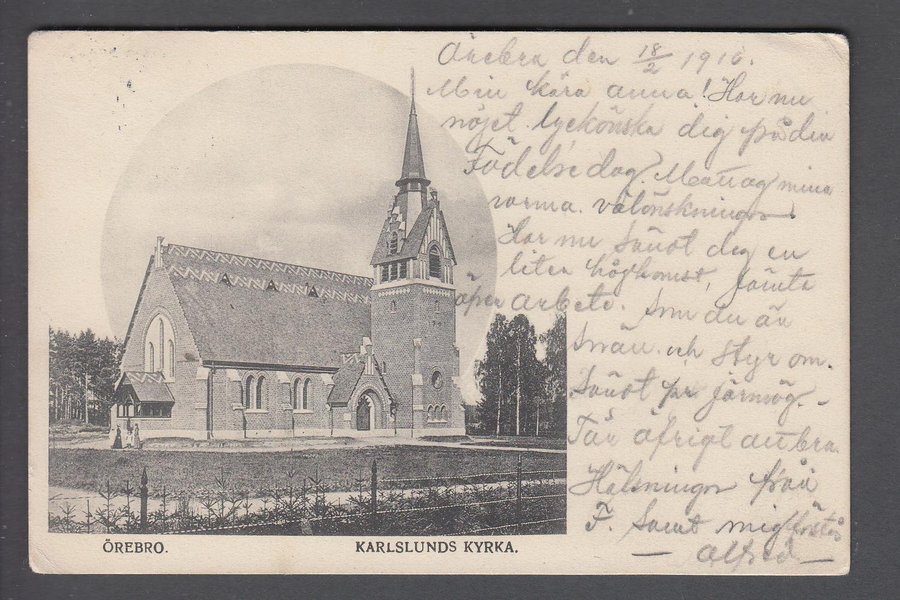 Örebro den 18/2 1916.
Min kära anna! Har nu
nöjet lyckönska dig på din
Födelsedag. Mottag mina
varma välönskningar
Har nu sänt dig en
liten
arbete. Som du är
snäll och styr om.
Sänt pr
Får öfrigt
Hälsningar från
F. Samt mig
— Alfred —
ÖREBRO.
KARLSLUNDS KYRKA.